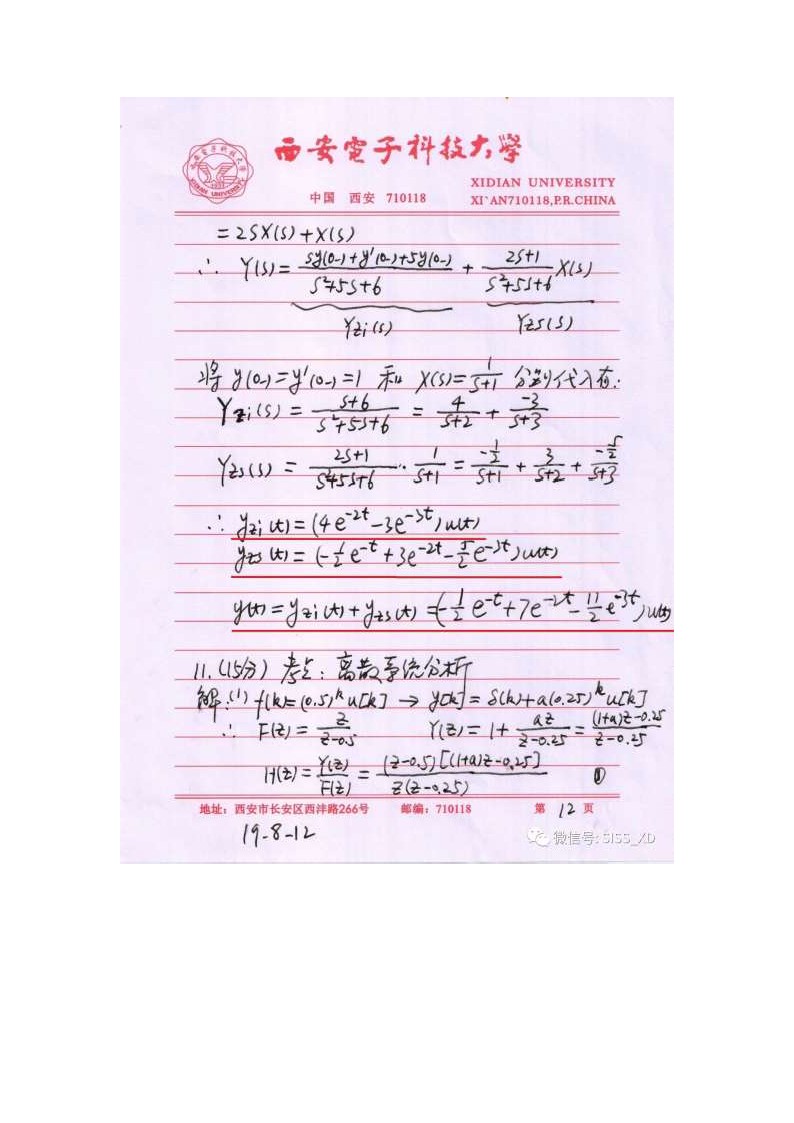 西安電子科技大學
XIDIAN UNIVERSITY
中国 西安 710118 XI`AN710118,P.R.CHINA
= 2SX(s)+X(s)
∴ Y(s)= (sy(0-)+y'(0-)+5y(0-))/(s²+5s+6) + (2s+1)/(s²+5s+6) X(s)
Yzi(s) Yzs(s)
将 y(0-)=y'(0-)=1 和 X(s)= 1/(s+1) 分别代入有:
Yzi(s) = (s+6)/(s²+5s+6) = 4/(s+2) + (-3)/(s+3)
Yzs(s) = (2s+1)/(s²+5s+6) · 1/(s+1) = (-1/2)/(s+1) + 3/(s+2) + (-5/2)/(s+3)
∴ yzi(t)=(4e^{-2t}-3e^{-3t})u(t)
yzs(t)=(-1/2 e^{-t}+3e^{-2t}-5/2 e^{-3t})u(t)
y(t)=yzi(t)+yzs(t)=(-1/2 e^{-t}+7e^{-2t}-11/2 e^{-3t})u(t)
11.(15分) 考点: 离散系统分析
解:(1) f(k)=(0.5)^k u[k] → y[k]=δ(k)+a(0.25)^k u[k]
∴ F(z)= z/(z-0.5) Y(z)=1+ az/(z-0.25) = ((1+a)z-0.25)/(z-0.25)
H(z)= Y(z)/F(z) = (z-0.5)[(1+a)z-0.25]/(z(z-0.25)) ①
地址: 西安市长安区西沣路266号 邮编: 710118 第 12 页
19-8-12
微信号: SISS_XD